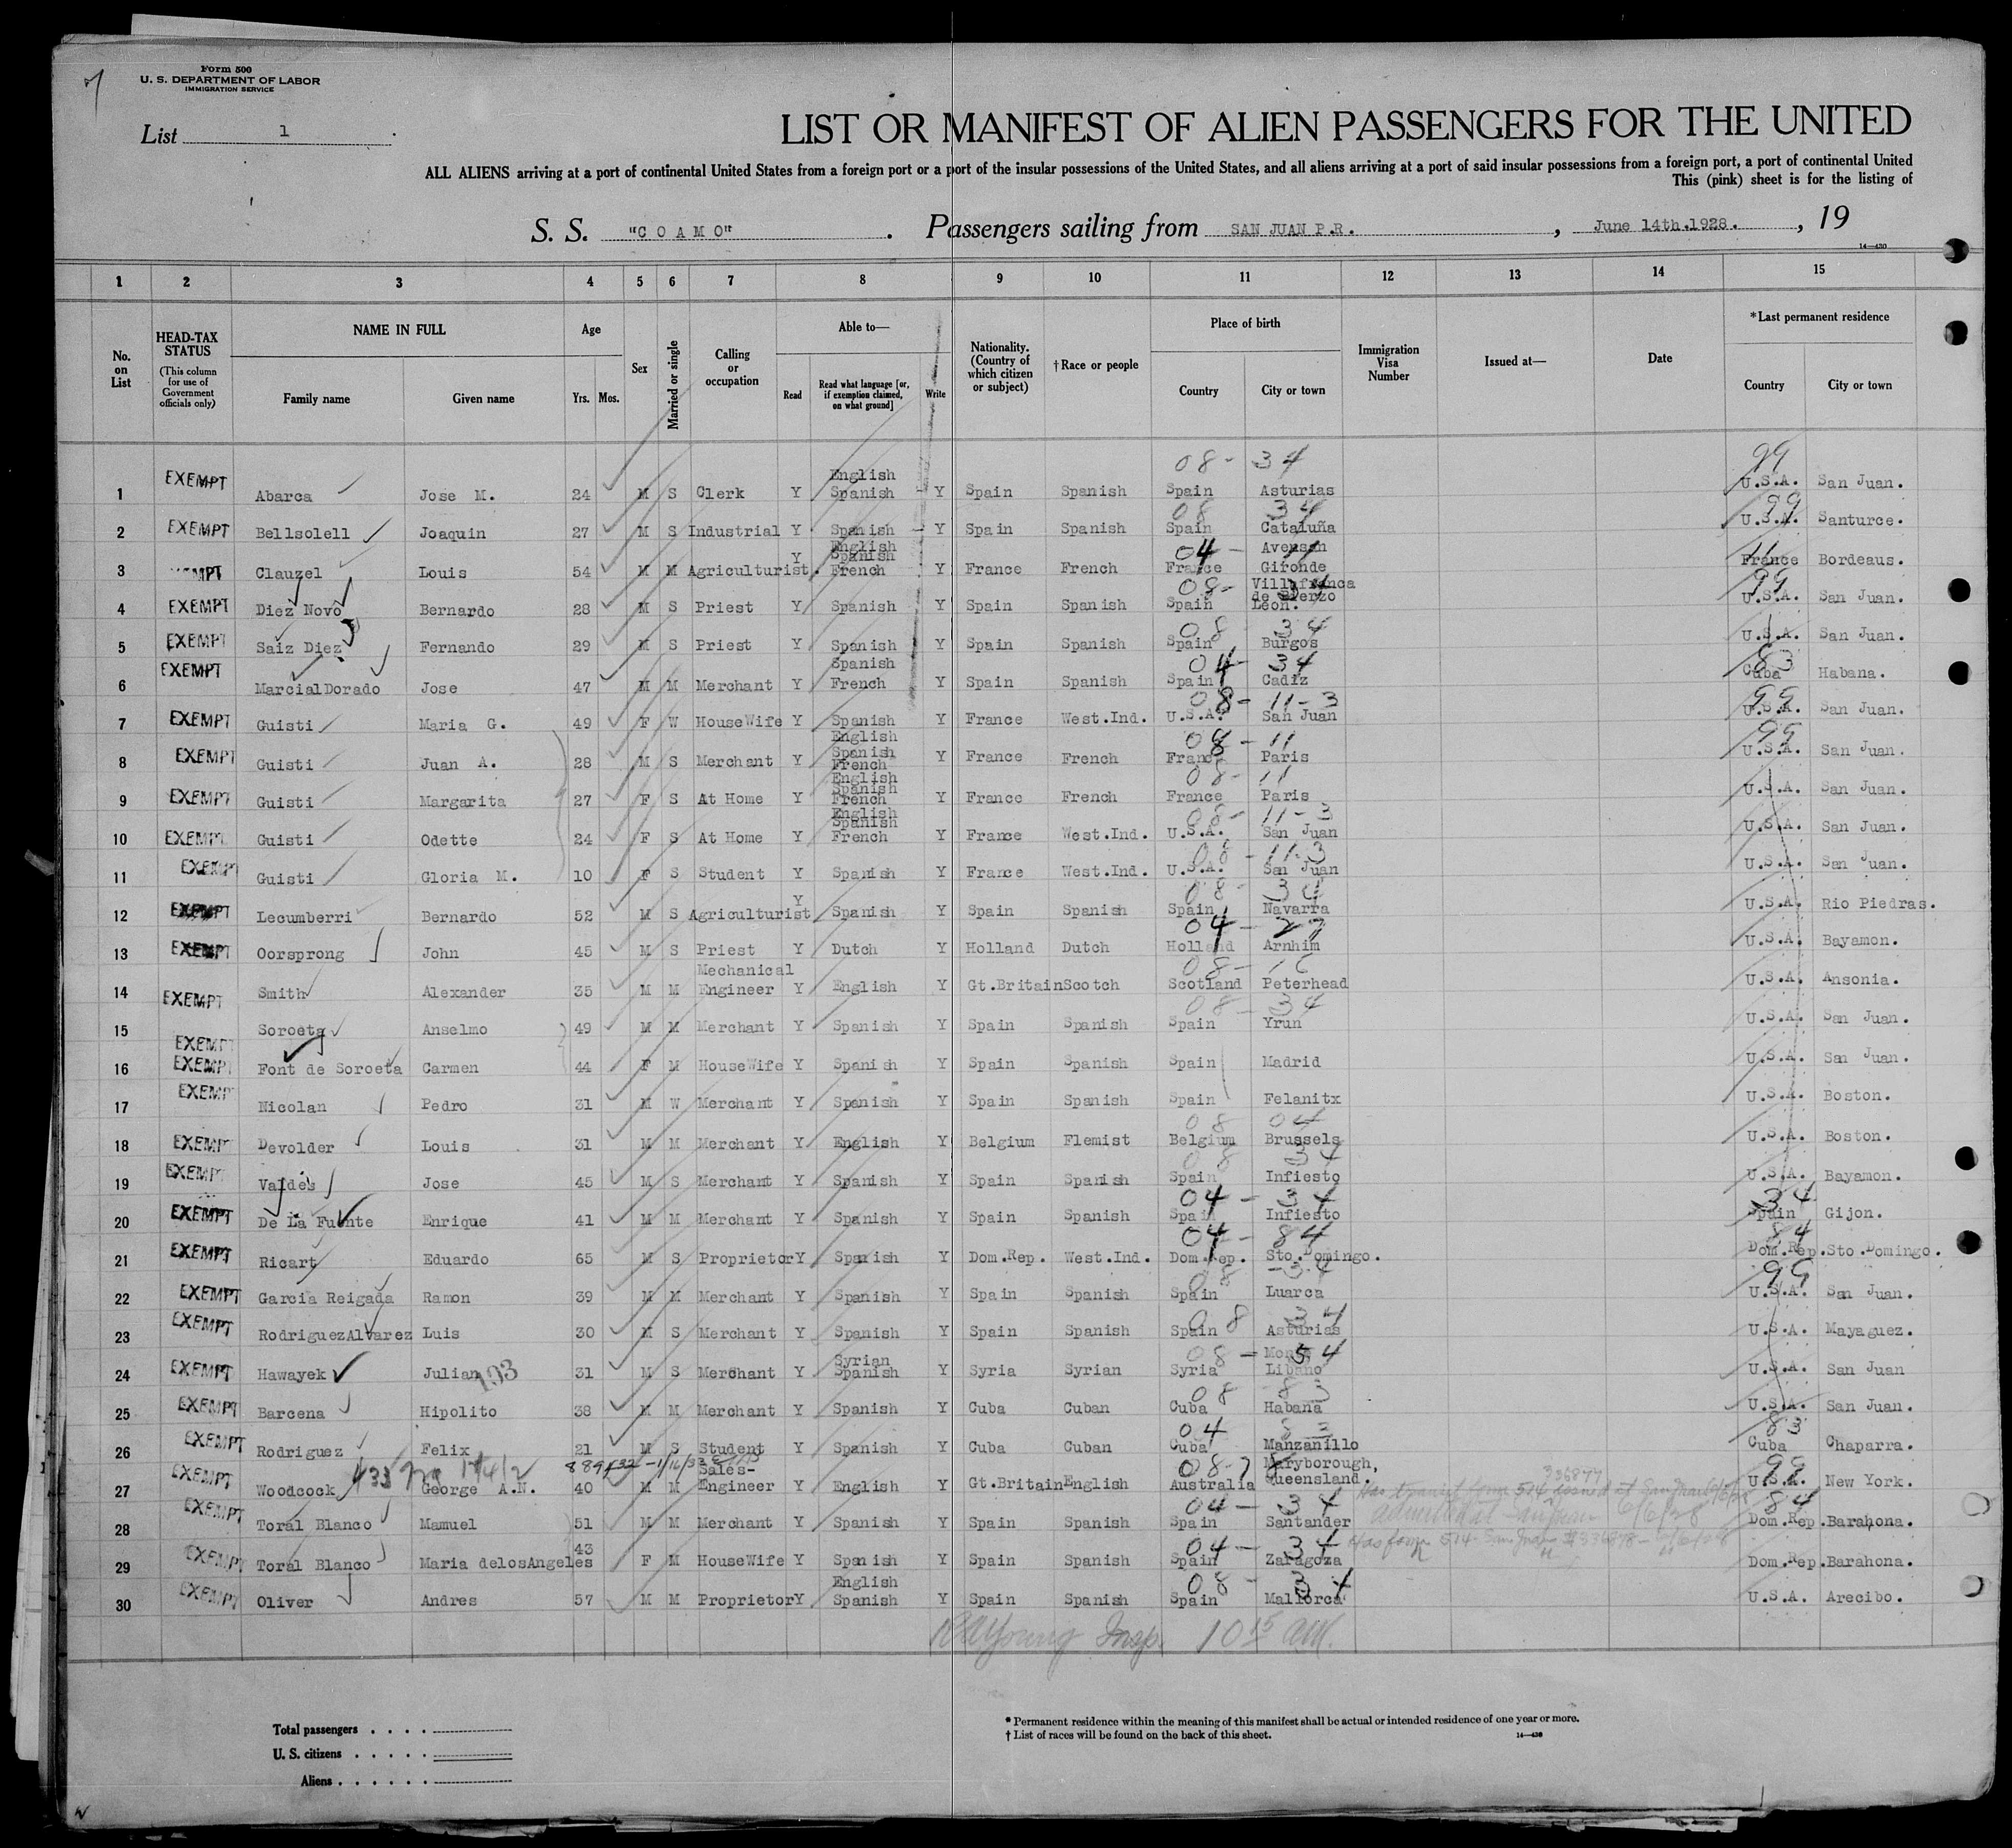 Form 500
U. S. DEPARTMENT OF LABOR
IMMIGRATION SERVICE
List 1
LIST OR MANIFEST OF ALIEN PASSENGERS FOR THE UNITED
ALL ALIENS arriving at a port of continental United States from a foreign port or a port of the insular possessions of the United States, and all aliens arriving at a port of said insular possessions from a foreign port, a port of continental United
This (pink) sheet is for the listing of
S. S. "C O A M O". Passengers sailing from SAN JUAN P.R. , June 14th.1928. , 19
14—430
1 2 3 4 5 6 7 8 9 10 11 12 13 14 15
No. on List HEAD-TAX STATUS (This column for use of Government officials only) NAME IN FULL Family name Given name Age Yrs. Mos. Sex Married or single Calling or occupation Able to— Read Read what language [or, if exemption claimed, on what ground] Write Nationality. (Country of which citizen or subject) †Race or people Place of birth Country City or town Immigration Visa Number Issued at— Date *Last permanent residence Country City or town
1 EXEMPT Abarca Jose M. 24 M S Clerk Y English Spanish Y Spain Spanish Spain Asturias 08-34 99 U.S.A. San Juan.
2 EXEMPT Bellsolell Joaquin 27 M S Industrial Y Spanish Y Spain Spanish Spain Cataluña 08 34 99 U.S.A. Santurce.
3 EXEMPT Clauzel Louis 54 M M Agriculturist. Y English Spanish French Y France French France Gironde 04-11 11 France Bordeaus.
4 EXEMPT Diez Novo Bernardo 28 M S Priest Y Spanish Y Spain Spanish Spain Villafranca de Bierzo Leon. 08-34 99 U.S.A. San Juan.
5 EXEMPT Saiz Diez Fernando 29 M S Priest Y Spanish Y Spain Spanish Spain Burgos 08 34 U.S.A. San Juan.
6 EXEMPT MarcialDorado Jose 47 M M Merchant Y Spanish French Y Spain Spanish Spain Cadiz 04-34 83 Cuba Habana.
7 EXEMPT Guisti Maria G. 49 F W HouseWife Y Spanish Y France West.Ind. U.S.A. San Juan 08-11-3 99 U.S.A. San Juan.
8 EXEMPT Guisti Juan A. 28 M S Merchant Y English Spanish French Y France French France Paris 08-11 99 U.S.A. San Juan.
9 EXEMPT Guisti Margarita 27 F S At Home Y English Spanish French Y France French France Paris 08-11 U.S.A. San Juan.
10 EXEMPT Guisti Odette 24 F S At Home Y English Spanish French Y France West.Ind. U.S.A. San Juan 08-11-3 U.S.A. San Juan.
11 EXEMPT Guisti Gloria M. 10 F S Student Y Spanish Y France West.Ind. U.S.A. San Juan 08-11-3 U.S.A. San Juan.
12 EXEMPT Lecumberri Bernardo 52 M S Agriculturist Y Spanish Y Spain Spanish Spain Navarra 08-34 U.S.A. Rio Piedras.
13 EXEMPT Oorsprong John 45 M S Priest Y Dutch Y Holland Dutch Holland Arnhim 04-27 U.S.A. Bayamon.
14 EXEMPT Smith Alexander 35 M M Mechanical Engineer Y English Y Gt.Britain Scotch Scotland Peterhead 08-16 U.S.A. Ansonia.
15 EXEMPT Soroeta Anselmo 49 M M Merchant Y Spanish Y Spain Spanish Spain Yrun 08-34 U.S.A. San Juan.
16 EXEMPT Font de Soroeta Carmen 44 F M HouseWife Y Spanish Y Spain Spanish Spain Madrid U.S.A. San Juan.
17 EXEMPT Nicolan Pedro 31 M W Merchant Y Spanish Y Spain Spanish Spain Felanitx U.S.A. Boston.
18 EXEMPT Devolder Louis 31 M M Merchant Y English Y Belgium Flemist Belgium Brussels 08 04 U.S.A. Boston.
19 EXEMPT Valdes Jose 45 M S Merchant Y Spanish Y Spain Spanish Spain Infiesto 08 34 U.S.A. Bayamon.
20 EXEMPT De La Fuente Enrique 41 M M Merchant Y Spanish Y Spain Spanish Spain Infiesto 04-34 34 Spain Gijon.
21 EXEMPT Ricart Eduardo 65 M S Proprietor Y Spanish Y Dom.Rep. West.Ind. Dom.Rep. Sto.Domingo. 04-84 84 Dom.Rep. Sto.Domingo.
22 EXEMPT Garcia Reigada Ramon 39 M M Merchant Y Spanish Y Spain Spanish Spain Luarca 08-34 99 U.S.A. San Juan.
23 EXEMPT RodriguezAlvarez Luis 30 M S Merchant Y Spanish Y Spain Spanish Spain Asturias 08 34 U.S.A. Mayaguez.
24 EXEMPT Hawayek Julian 103 31 M S Merchant Y Syrian Spanish Y Syria Syrian Syria Libano 08-54 U.S.A. San Juan
25 EXEMPT Barcena Hipolito 38 M M Merchant Y Spanish Y Cuba Cuban Cuba Habana 08 83 U.S.A. San Juan.
26 EXEMPT Rodriguez Felix 21 M S Student Y Spanish Y Cuba Cuban Cuba Manzanillo 04 83 83 Cuba Chaparra.
27 EXEMPT Woodcock George A.N. 40 M M Sales-Engineer Y English Y Gt.Britain English Australia Maryborough, Queensland. 99 U.S.A. New York.
28 EXEMPT Toral Blanco Mamuel 51 M M Merchant Y Spanish Y Spain Spanish Spain Santander 04-34 84 Dom.Rep. Barahona.
29 EXEMPT Toral Blanco Maria delosAngeles 43 F M HouseWife Y Spanish Y Spain Spanish Spain Zaragoza 04-34 Dom.Rep. Barahona.
30 EXEMPT Oliver Andres 57 M M Proprietor Y English Spanish Y Spain Spanish Spain Mallorca 08-34 U.S.A. Arecibo.
Insp. 10 15 AM.
Total passengers . . . .
U. S. citizens . . . . .
Aliens . . . . . .
* Permanent residence within the meaning of this manifest shall be actual or intended residence of one year or more.
† List of races will be found on the back of this sheet.
14—430